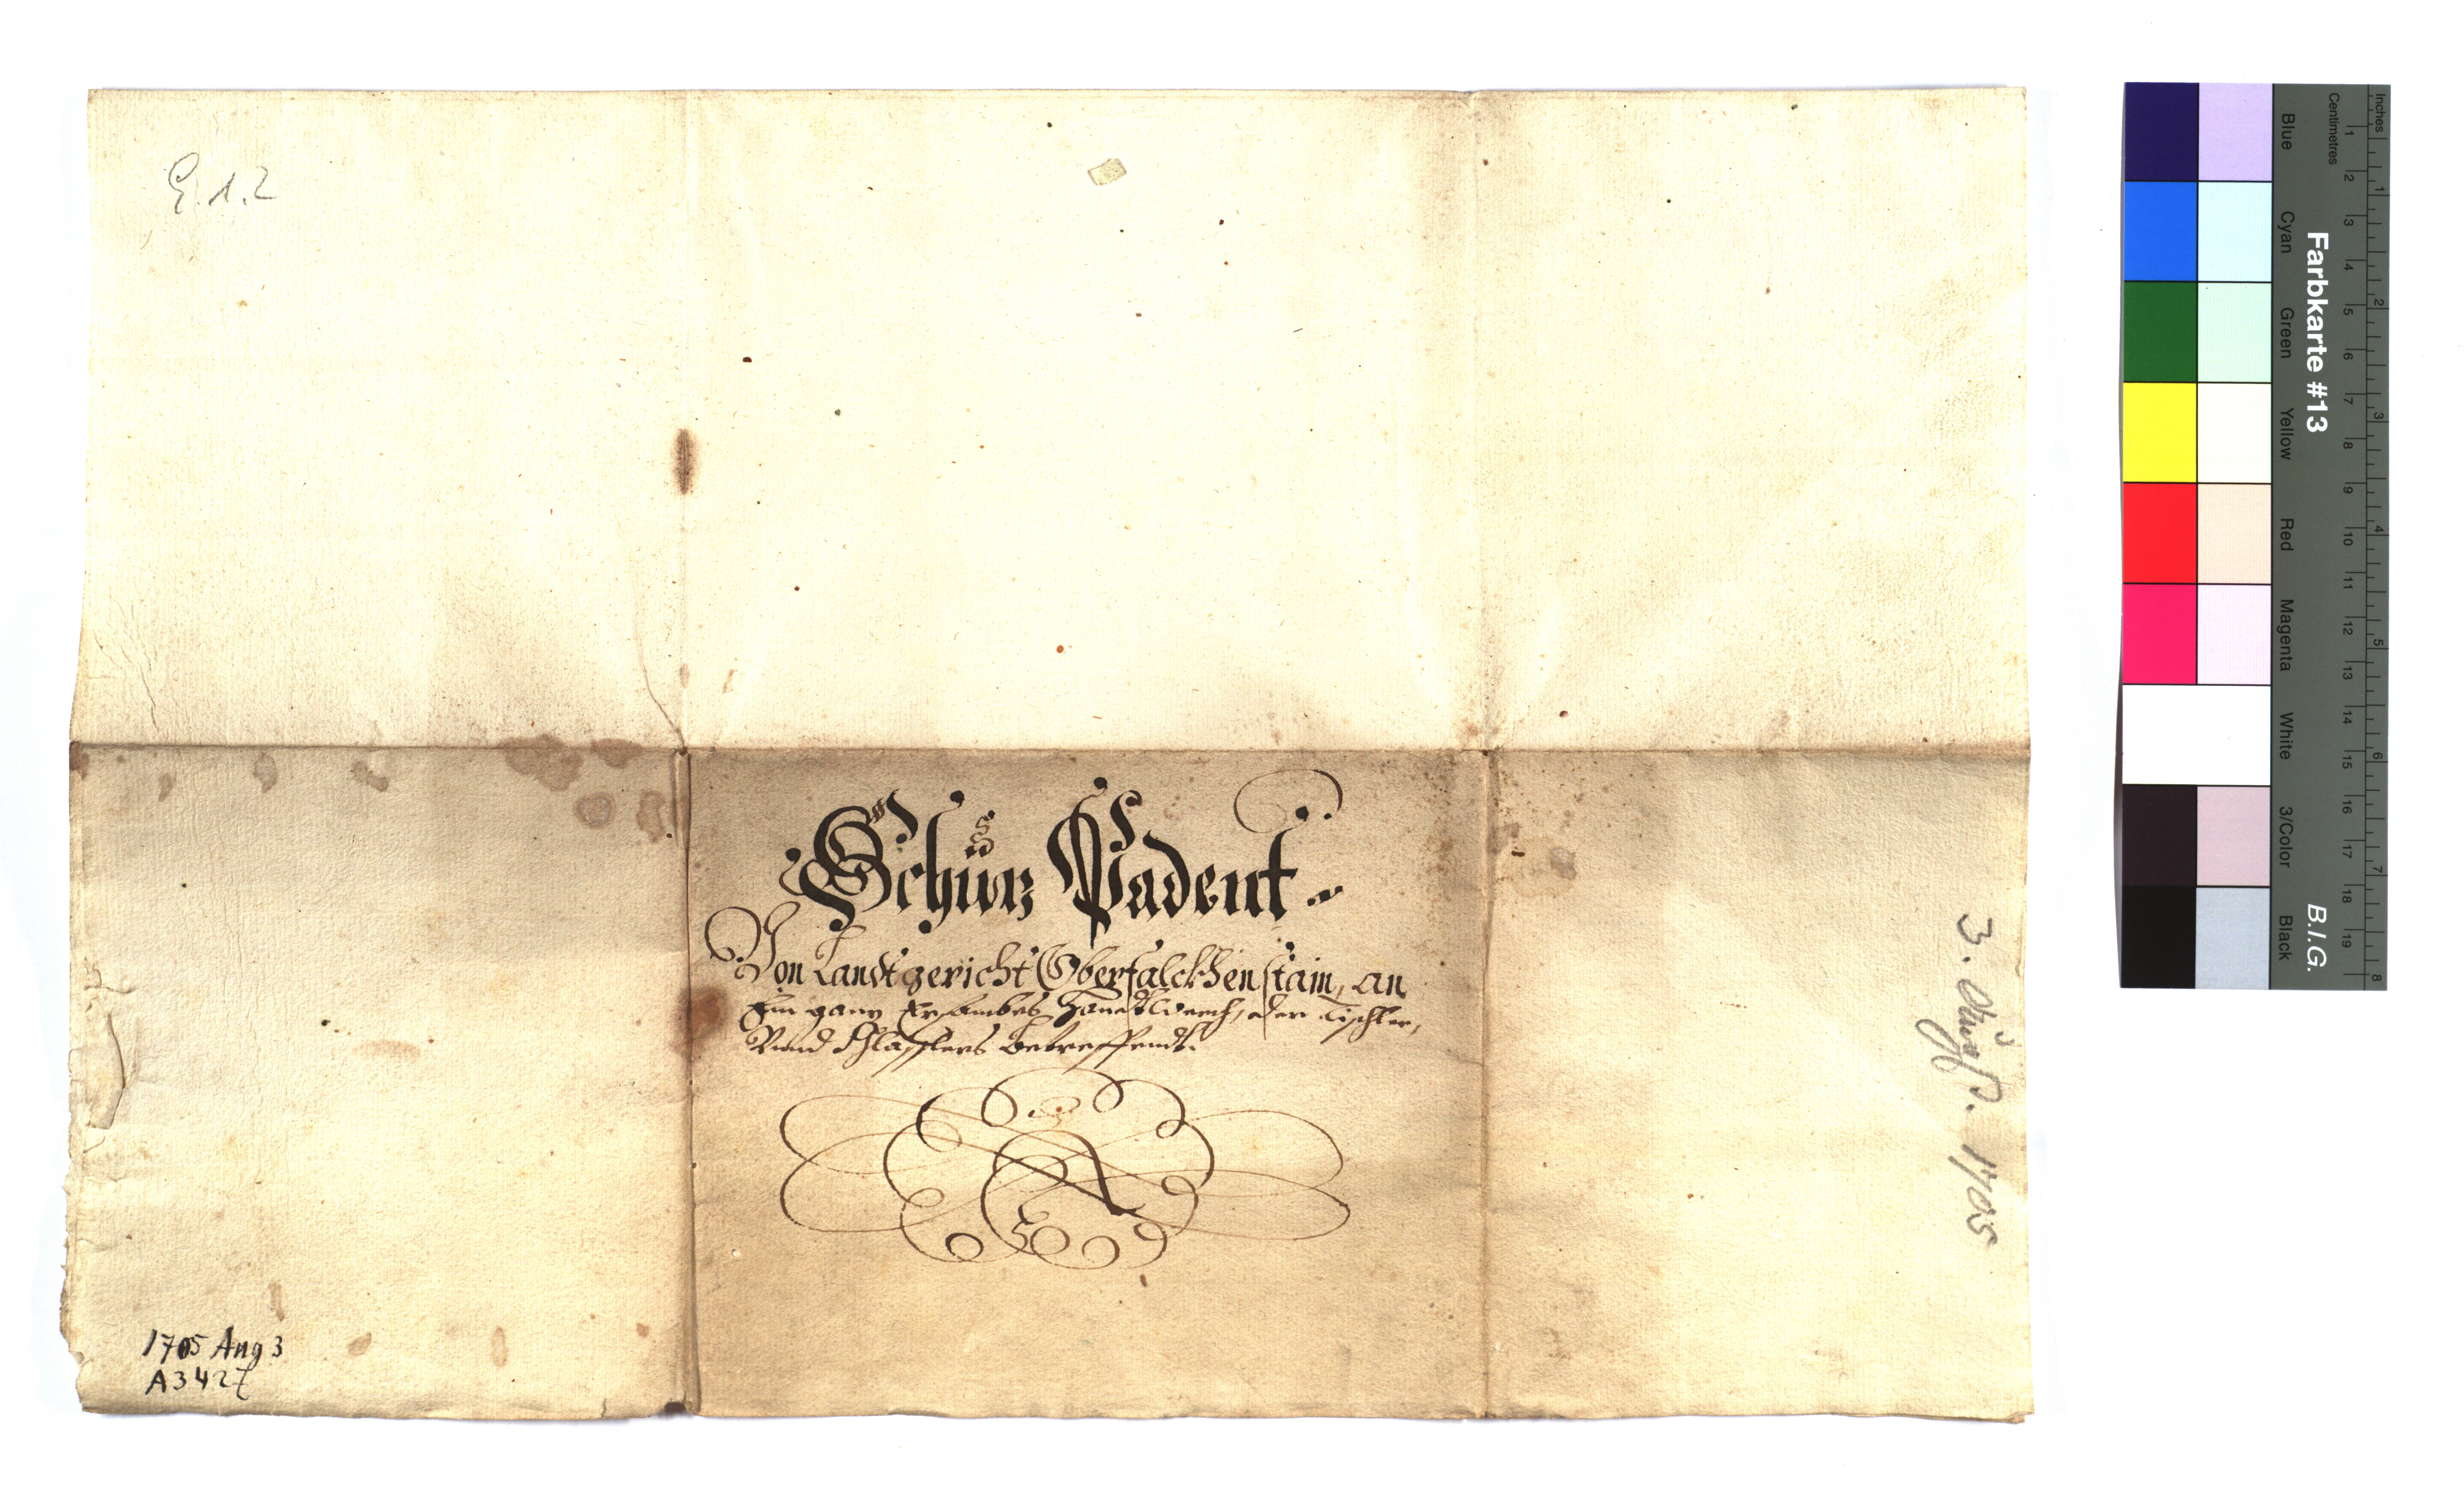 E.1.2
Schuz Padent.
Von Landtgericht Oberfalckhenstain, an
Ein ganz Ersambes Handtwerch, der Tischler,
Vnnd Schlosslers betreffendt.
3. Augst. 1705
1705 Aug 3
A 3427
Farbkarte #13
B.I.G.
Inches
Centimetres
1 2 3 4 5 6 7 8 9 10 11 12 13 14 15 16 17 18 19
1 2 3 4 5 6 7 8
Blue
Cyan
Green
Yellow
Red
Magenta
White
3/Color
Black